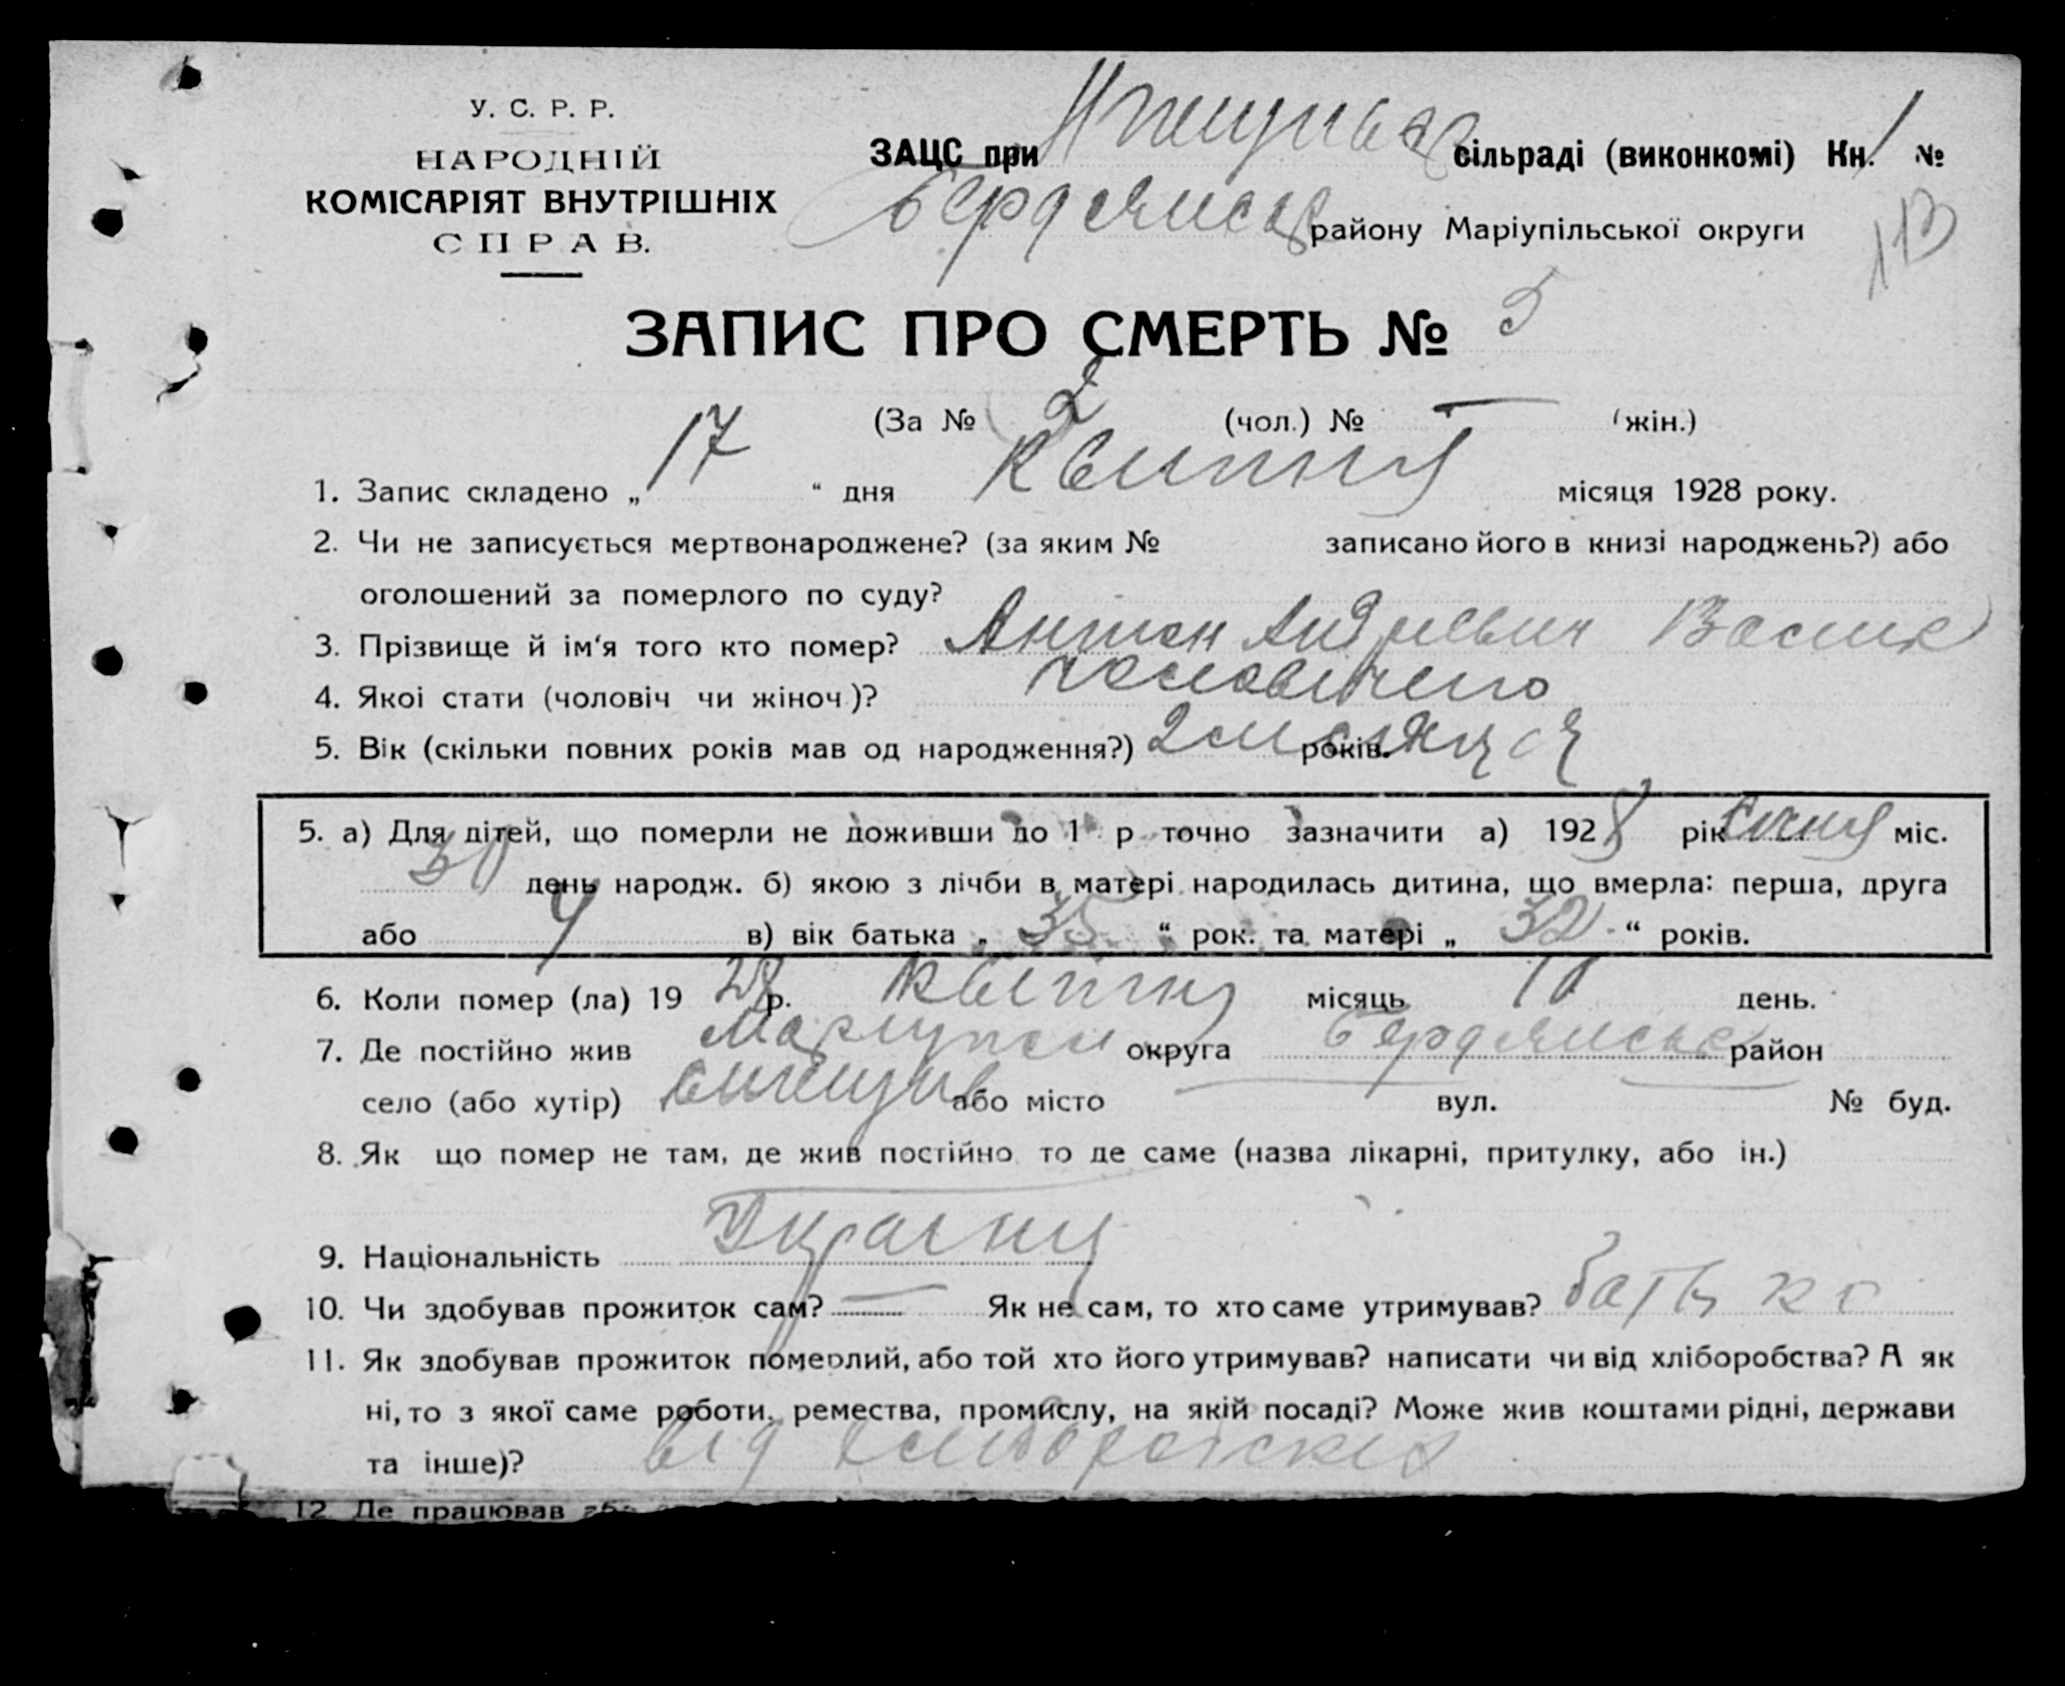 У. С. Р. Р.
НАРОДНІЙ
КОМІСАРІЯТ ВНУТРІШНІХ
СПРАВ.
ЗАЦС при сільраді (виконкомі) Кн. 1 №
Бердянськ району Маріупільської округи
113
ЗАПИС ПРО СМЕРТЬ № 5
(За № 2 (чол.) № — (жін.)
1. Запис складено „ 17 “ дня Квитня місяця 1928 року.
2. Чи не записується мертвонароджене? (за яким № записано його в книзі народжень?) або
оголошений за померлого по суду?
3. Прізвище й ім‘я того кто помер? Антон Андреевич
4. Якоі стати (чоловіч чи жіноч)?
5. Вік (скільки повних років мав од народження?) 2 років.
5. а) Для дітей, що померли не доживши до 1 р точно зазначити а) 1928 рік Січня міс.
30 день народж. б) якою з лічби в матері народилась дитина, що вмерла: перша, друга
або 4 в) вік батька „ 35 “ рок. та матері „ 32 “ років.
6. Коли помер (ла) 19 28 р. Квітня місяць 10 день.
7. Де постійно жив округа Бердянське район
село (або хутір) або місто вул. № буд.
8. Як що помер не там, де жив постійно то де саме (назва лікарні, притулку, або ін.)
9. Національність
10. Чи здобував прожиток сам? — Як не сам, то хто саме утримував? батько
11. Як здобував прожиток померлий, або той хто його утримував? написати чи від хліборобства? А як
ні, то з якої саме роботи, ремества, промислу, на якій посаді? Може жив коштами рідні, держави
та інше)? від
12. Де працював